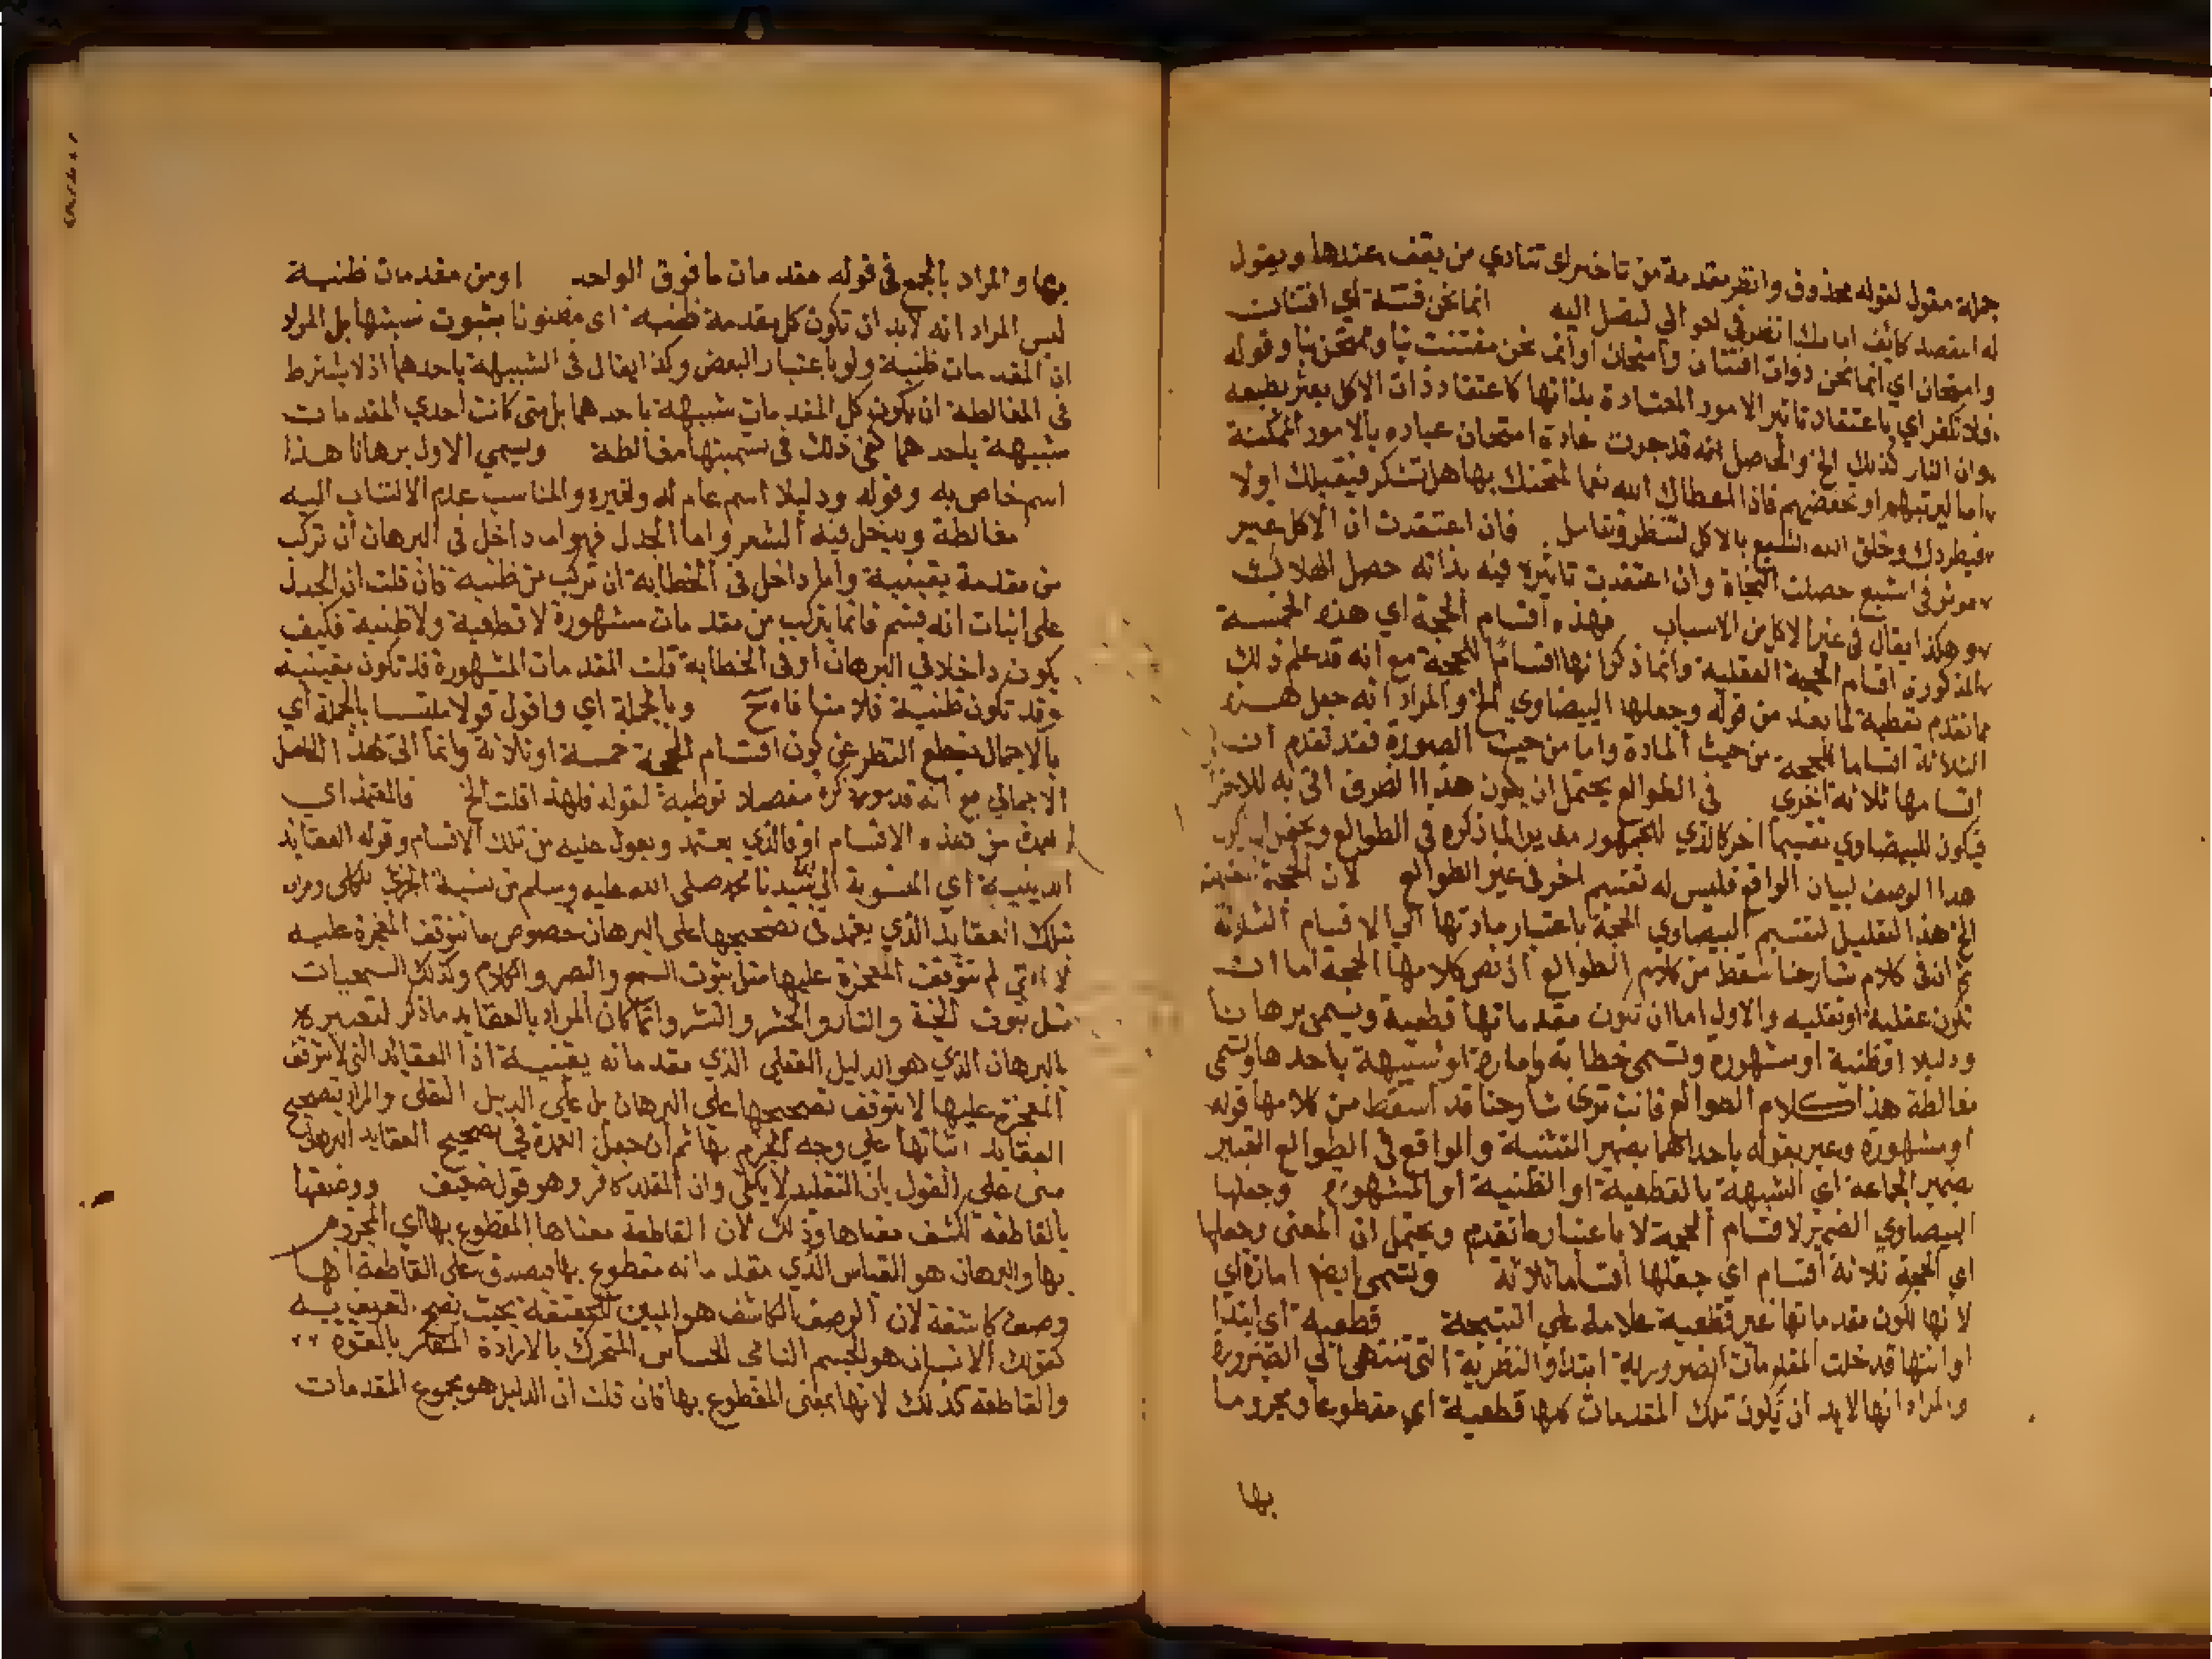 جملة مقول لقوله محذوف وانظر مقدمة من تاخير اي تنادي من يقف عندها ويقول
له اقصد امامك انظر في احوالي لتصل اليه انما نحن فتنة اي افتتان
وامتحان اي انما نحن ذوات افتتان وامتحان او انما نحن مفتتن بنا وممتحن بنا وقوله
فلا تكفر اي باعتقاد تاثير الامور المعتادة بذاتها كاعتقاد ذات الاكل يؤثر بطبعه
وان النار كذلك الخ والحاصل انه قد جرت عادة امتحان عباده بالامور الممكنة
اما ليرتبهم او يخفضهم فاذا اعطاك الله نعما امتحنك بها هل تشكر فيقبلك اولا
فيطردك وخلق الله الشبع بالاكل لتنظر وتتامل فان اعتقدت ان الاكل غير
موثر في الشبع حصلت النجاة وان اعتقدت تاثيره فيه بذاته حصل الهلاك
وهكذا يقال في غير الاكل من الاسباب فهذه اقسام الحجة اي هذه الخمسة
المذكورة اقسام الحجة العقلية وانما ذكر انها اقساما للحجة مع انه قد علم ذلك
مما تقدم توطية لما بعد من قوله وجعلها البيضاوي الخ والمراد انه جعل هذه
الثلاثة اقساما للحجة من حيث المادة واما من حيث الصورة فقد تقدم ان
اقسامها ثلاثة اخرى في الطوالع يحتمل ان يكون هذا الظرف اتى به للاحتراز
فيكون للبيضاوي تقسيما اخر كالذي للجمهور مغاير لما ذكره في الطوالع ويحتمل ان يكون
هذا الوصف لبيان الواقع فليس له تقسيم اخر في غير الطوالع لان الحجة
الخ هذا التعليل لتقسيم البيضاوي الحجة باعتبار مادتها الي الاقسام الثلاثة
ثم انه في كلام شارحنا سقط من كلام الطوالع اذ نص كلامها الحجة اما ان
تكون عقلية او نقليه والاول اما ان تكون مقدماتها قطعية ويسمى برهانا
ودليلا او ظنية او مشهورة وتسمى خطابة وامارة او شبيهة باحدها وتسمى
مغالطة هذا كلام الطوالع فانت ترى شارحنا قد اسقط من كلامها قوله
او مشهورة وعبر بقوله باحداهما بضمير التثنية والواقع في الطوالع التعبير
بضمير الجماعة اي الشبيهة بالقطعية او الظنية او المشهورة وجعلها
البيضاوي الضمير لاقسام الحجة لا باعتبار ما تقدم ويحتمل ان المعنى وجعلها
اي الحجة ثلاثة اقسام اي جعلها اقساما ثلاثة وتسمى ايضا امارة اي
لانها لكون مقدماتها غير قطعية علامة على النتيجة قطعية اي ابتدا
او انتها فدخلت المقدمات الضرورية ابتدا والنظرية التي تنتهي الي الضرورة
والمراد انها لابد ان تكون تلك المقدمات كلها قطعية اي مقطوعا ومجزوما
بها
بها والمراد بالجمع في قوله مقدمات ما فوق الواحد او من مقدمات ظنية
ليس المراد انه لابد ان تكون كل مقدمة ظنية اي مظنونا بثبوت نسبتها بل المراد
ان المقدمات ظنية ولو باعتبار البعض وكذا يقال في الشبيهة باحدهما اذ لا يشترط
في المغالطة ان يكون كل المقدمات شبيهة باحدهما بل متى كانت احدي المقدمات
شبيهة باحدهما كفى ذلك في تسميتها مغالطة ويسمي الاول برهانا هذا
اسم خاص به وقوله ودليلا اسم عام له ولغيره والمناسب عدم الالتفات اليه
مغالطة ويدخل فيه الشعر واما الجدل فهو اما داخل في البرهان ان تركب
من مقدمة يقينية واما داخل في الخطابة ان تركب من ظنية فان قلت ان الجدل
على اثبات انه قسم فانما يتركب من مقدمات مشهورة لا قطعية ولا ظنية فكيف
يكون داخلا في البرهان او في الخطابة قلت المقدمات المشهورة قد تكون يقينية
وقد تكون ظنية فلا منافاة ح وبالجملة اي واقول قولا ملتبسا بالجملة اي
بالاجمال بقطع النظر عن كون اقسام الحجة خمسة او ثلاثة وانما اتى بهذا الحاصل
الاجمالي مع انه قد مر ذكره مفصلا توطية لقوله فلهذا قلت الخ فالمعتمد اي
من هذه الاقسام او فالذي يعتمد ويعول عليه من تلك الاقسام وقوله العقايد
الدينية اي المنسوبة الى دين سيدنا محمد صلى الله عليه وسلم من نسبة الجزئي للكلي ومراده
بتلك العقايد الذي يعتمد في تصحيحها على البرهان خصوص ما تتوقف المعجزة عليه
لا التي لم تتوقف المعجزة عليها مثل ثبوت السمع والبصر والكلام وكذلك السمعيات
مثل ثبوت الجنة والنار والحشر والنشر وانما كان المراد بالعقايد ما ذكر لتعبيره
بالبرهان الذي هو الدليل العقلي الذي مقدماته يقينية اذ العقائد التي لا تتوقف
المعجزة عليها لا يتوقف تصحيحها على البرهان بل علي الدليل النقلي والمراد بتصحيح
العقايد اثباتها علي وجه الجزم بها ثم ان جعل العمدة في تصحيح العقايد البرهان
مبني علي القول بان التقليد لا يكفي وان المقلد كافر وهو قول ضعيف ووصفها
بالقاطعة لكشف معناها وذلك لان القاطعة معناها المقطوع بها اي المجزوم
بها والبرهان هو القياس الذي مقدماته مقطوع بها فيصدق على القاطعة انها
وصف كاشفة لان الوصف الكاشف هو المبين للحقيقة بحيث يصح تعريف به
كقولك الانسان هو الجسم النامي الحساس المتحرك بالارادة المتفكر بالقوه
والقاطعة كذلك لانها بمعنى المقطوع بها فان قلت ان الدليل هو مجموع المقدمات